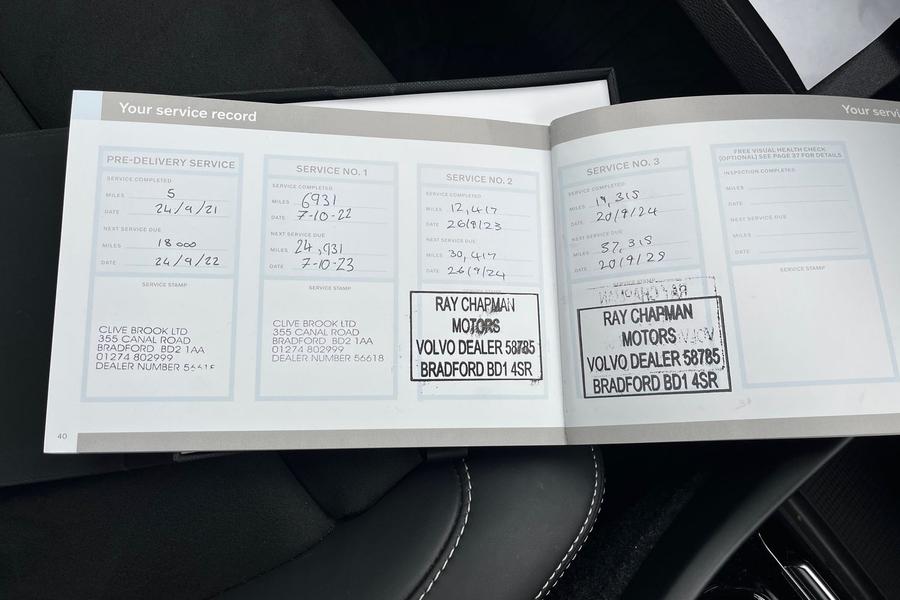 Your service record
PRE-DELIVERY SERVICE
SERVICE COMPLETED:
MILES 5
DATE 24/9/21
NEXT SERVICE DUE:
MILES 18 000
DATE 24/9/22
SERVICE STAMP
CLIVE BROOK LTD
355 CANAL ROAD
BRADFORD BD2 1AA
01274 802999
DEALER NUMBER
40
SERVICE NO. 1
SERVICE COMPLETED:
MILES 6931
DATE 7-10-22
NEXT SERVICE DUE:
MILES 24,931
DATE 7-10-23
SERVICE STAMP
CLIVE BROOK LTD
355 CANAL ROAD
BRADFORD BD2 1AA
01274 802999
DEALER NUMBER 56618
SERVICE NO. 2
SERVICE COMPLETED:
MILES 12,417
DATE 26/9/23
NEXT SERVICE DUE:
MILES 30,417
DATE 26/9/24
RAY CHAPMAN
MOTORS
VOLVO DEALER 58785
BRADFORD BD1 4SR
Your servi
SERVICE NO. 3
SERVICE COMPLETED:
MILES 19,315
DATE 20/9/24
NEXT SERVICE DUE:
MILES 37,315
DATE
RAY CHAPMAN
MOTORS
VOLVO DEALER 58785
BRADFORD BD1 4SR
FREE VISUAL HEALTH CHECK
(OPTIONAL) SEE PAGE 37 FOR DETAILS
INSPECTION COMPLETED:
MILES
DATE
NEXT SERVICE DUE:
MILES
DATE
SERVICE STAMP